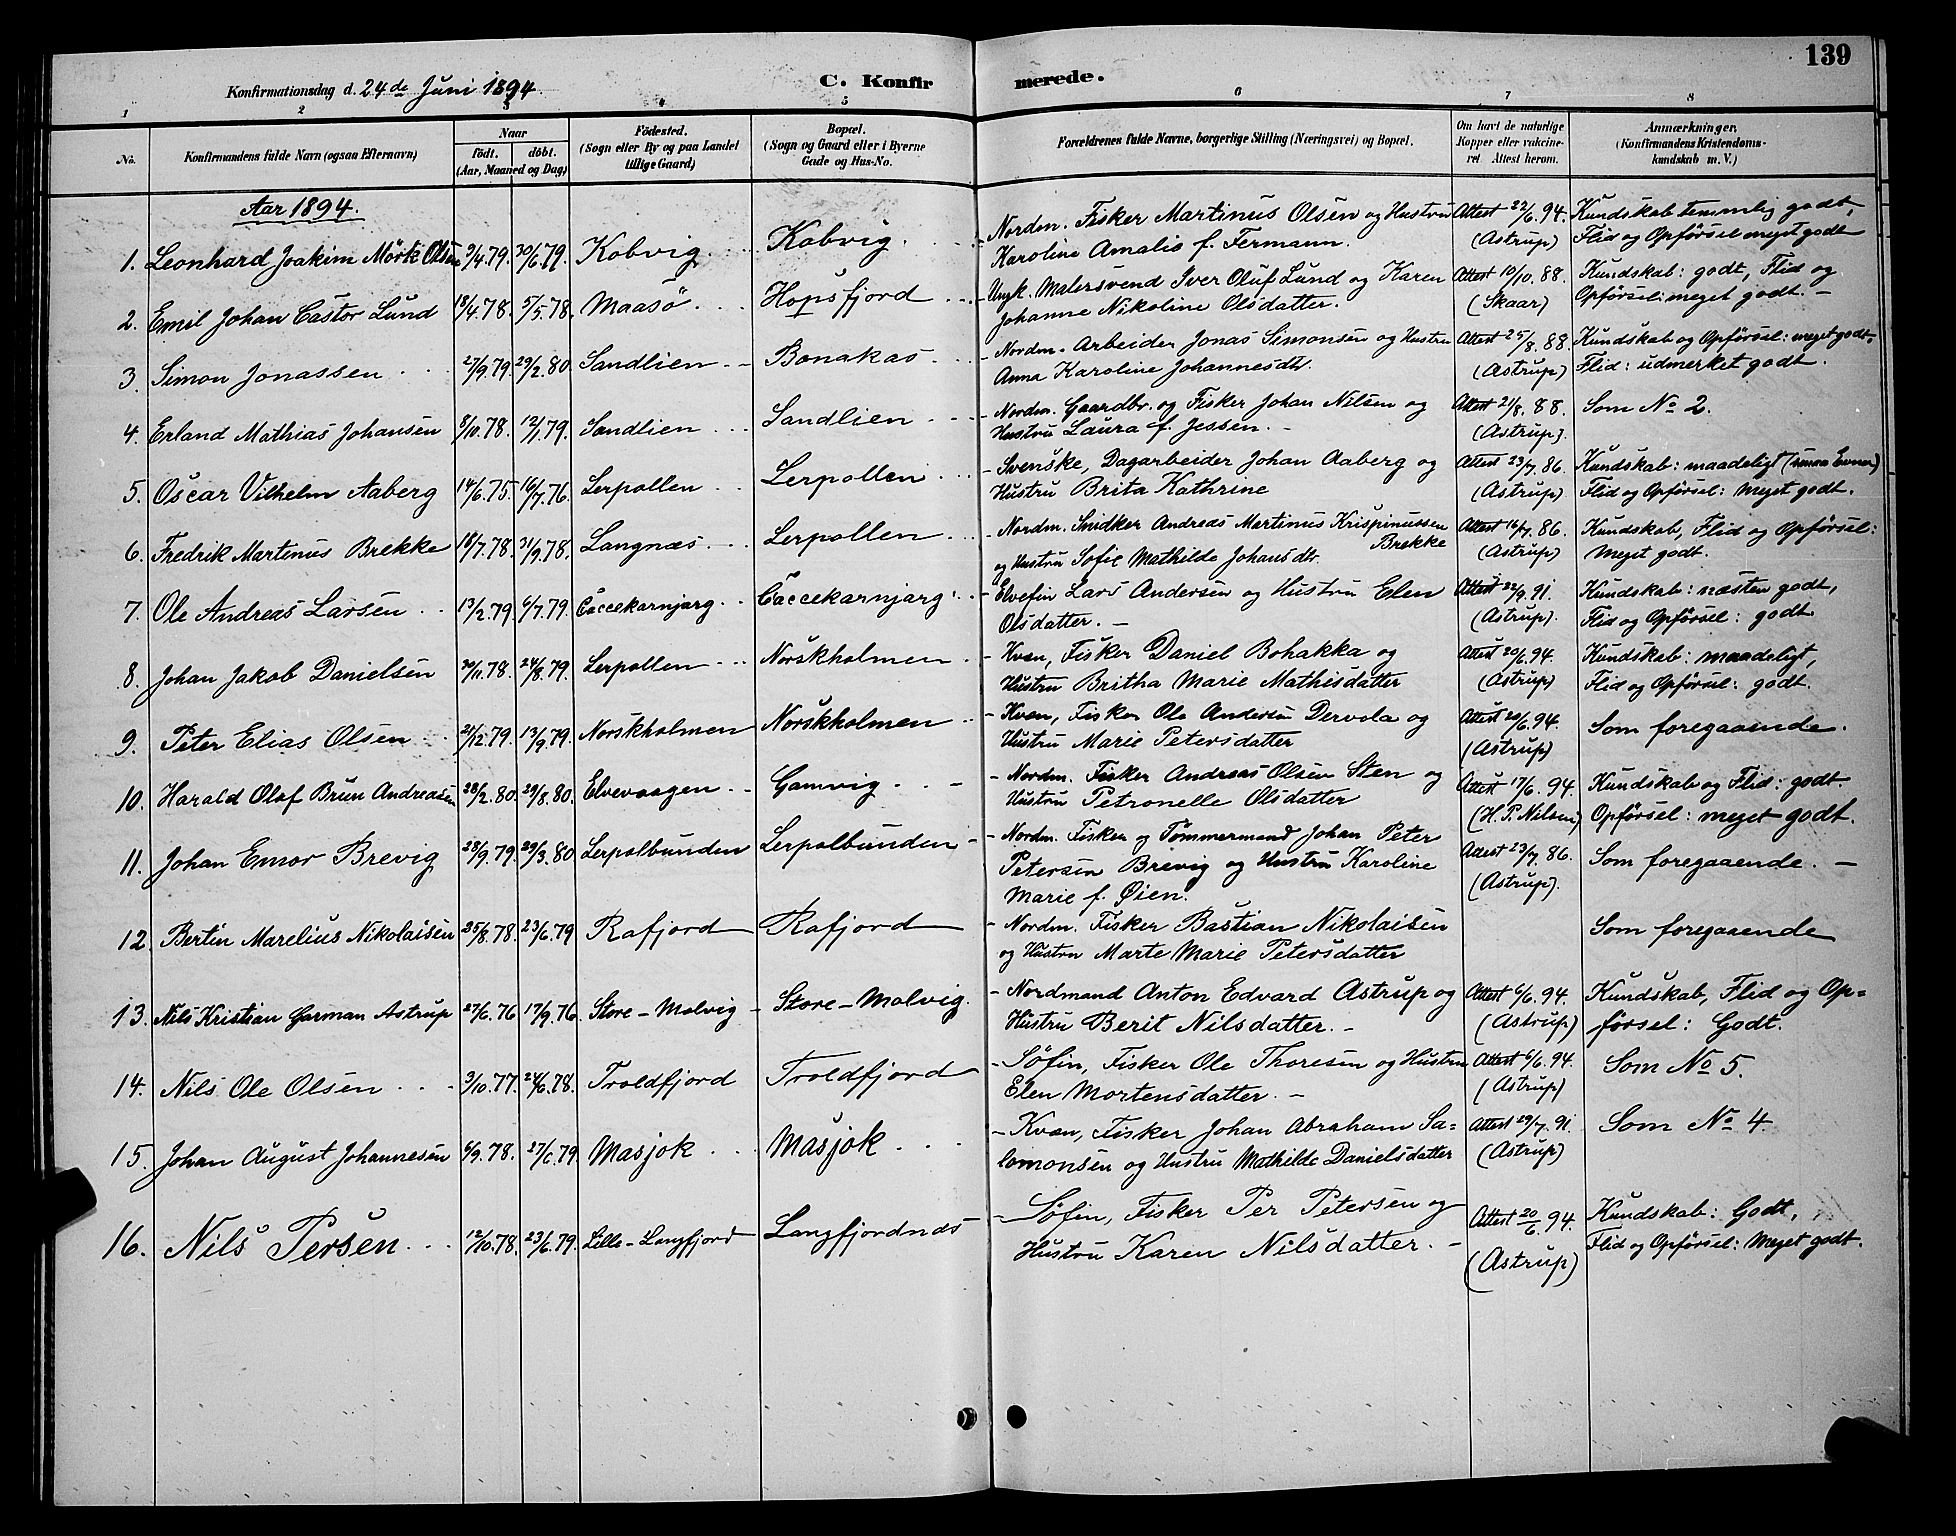 139
Konfirmationsdag d. 24de Juni 1894.
C. Konfirmerede.
1 2 3 4 5 6 7 8
No. Konfirmandens fulde Navn (ogsaa Efternavn) Naar födt. döbt. (Aar, Maaned og Dag) Födested. (Sogn eller By og paa Landet tillige Gaard) Bopæl. (Sogn og Gaard eller i Byerne Gade og Hus-No. Forældrenes fulde Navne, borgerlige Stilling (Næringsvei) og Bopæl. Om havt de naturlige Kopper eller vaccineret. Attest herom. Anmærkninger. (Konfirmandens Kristendomskundskab m. V.)
Aar 1894.
1. Leonhard Joakim Mörk Olsen 9/4.79. 30/6.79. Kobvig. Kobvig. Nordm. Fisker Martinus Olsen og Hustru Attest 22/6.94. Kundskab temmelig godt,
Karoline Amalie f. Fermann. (Astrup) Flid og Opförsel meget godt
2. Emil Johan Castor Lund 18/4.78. 5/5.78. Maasö Hopsfjord Ungk. Malersvend Iver Oluf Lund og Karen Attest 10/10.88. Kundskab: godt, Flid og
Johanne Nikoline Olsdatter. (Skaar) Opförsel: meget godt. –
3. Simon Jonassen 27/9.79. 29/2.80. Sandlien Bonakas Nordm. Arbeider Jonas Simonsen og Hustru Attest 25/8.88. Kundskab og Opförsel: meget godt.
Anna Karoline Johannesdtr. (Astrup) Flid: udmerket godt.
4. Erland Mathias Johansen 8/10.78. 12/1.79. Sandlien Sandlien Nordm. Gaardbr. og Fisker Johan Nilsen og Attest 21/8.88. Som No 2.
Hustru Laura f. Jessen. – (Astrup).
5. Oscar Vilhelm Aaberg 14/6.75. 16/7.76. Lerpollen Lerpollen Svenske, Dagarbeider Johan Aaberg og Attest 23/7.86. Kundskab: maadeligt (smaa Evner)
Hustru Brita Kathrine (Astrup) Flid og Opförsel: Meget godt.
6. Fredrik Martinus Brekke 18/7.78. 21/9.78. Langnæs Lerpollen Nordm. Snidker Andreas Martinus Krispinussen Attest 16/7.86. Kundskab, Flid og Opförsel:
Brekke
og Hustru Sofie Mathilde Johansdtr. (Astrup) Meget godt.
7. Ole Andreas Larsen 13/2.79. 6/7.79. Caccekarnjarg Caccekarnjarg Elvefin Lars Andersen og Hustru Elen Attest 22/9.91. Kundskab: næsten godt,
Olsdatter. – (Astrup). Flid og Opförsel: godt.
8. Johan Jakob Danielsen 30/11.78. 24/8.79. Lerpollen Norskholmen Kvæn, Fisker Daniel Bohakka og Attest 20/6.94. Kundskab: maadeligt,
Hustru Britha Marie Mathisdatter (Astrup) Flid og Opförsel: godt.
9. Peter Elias Olsen 21/12.79. 13/9.79. Norskholmen Norskholmen Kvæn, Fisker Ole Andersen Dervola og Attest 20/6.94. Som foregaaende.
Hustru Marie Petersdatter (Astrup)
10. Harald Olaf Brun Andreasen 28/2.80. 29/8.80. Elvevaagen Gamvig Nordm. Fisker Andreas Olsen Sten og Attest 17/6.94. Kundskab og Flid: godt.
Hustru Petronelle Olsdatter (H. P. Nilsen) Opförsel: meget godt.
11. Johan Emor Brevig 28/9.79. 29/3.80 Lerpolbunden Lerpolbunden Nordm. Fisker og Tømmermand Johan Peter Attest 23/7.86. Som foregaaende. –
Petersen Brevig og Hustru Karoline (Astrup).
Marie f. Øien.
12. Bertin Marelius Nikolaisen 25/8.78. 23/6.79 Rafjord Rafjord Nordm. Fisker Bastian Nikolaisen Som foregaaende
og Hustru Marte Marie Petersdatter
13. Nils Kristian Garman Astrup 27/6.76 17/9.76. Store-Molvig Store-Molvig. Nordmand Anton Edvard Astrup og Attest 6/6.94. Kundskab, Flid og Op=
Hustru Berit Nilsdatter. – (Astrup) försel: Godt.
14. Nils Ole Olsen 3/10.77. 24/6.78. Troldfjord Troldfjord Söfin, Fisker Ole Thoresen og Hustru Attest 6/6.94. Som No 5.
Elen Mortensdatter. – (Astrup)
15. Johan August Johannesen 6/9.78. 27/6.79. Masjok Masjok Kvæn, Fisker Johan Abraham Sa= Attest 29/7.91. Som No 4
lomonsen og Hustru Mathilde Danielsdatter (Astrup)
16. Nils Persen 12/10.78. 23/6.79. Lille-Langfjord Langfjordnæs Söfin, Fisker Per Petersen og Attest 20/6.94. Kundskab: Godt,
Hustru Karen Nilsdatter. – (Astrup) Flid og Opförsel: Meget godt.